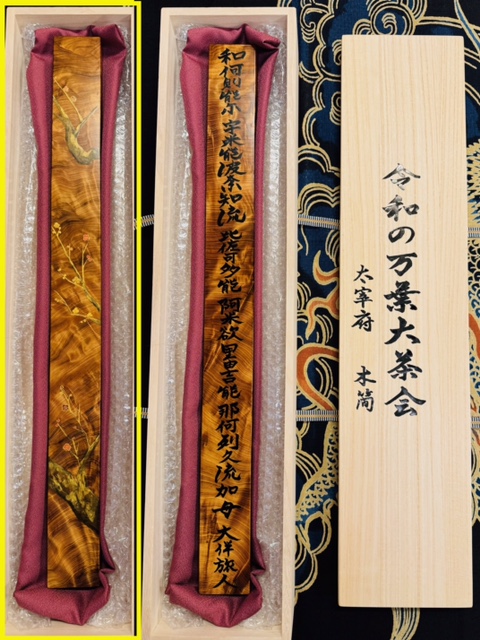 和何則能尓 宇米能波奈知流 比佐可多能 阿米欲里由吉能 那何列久流加母 大伴旅人
令和の万葉大茶会
太宰府 木簡